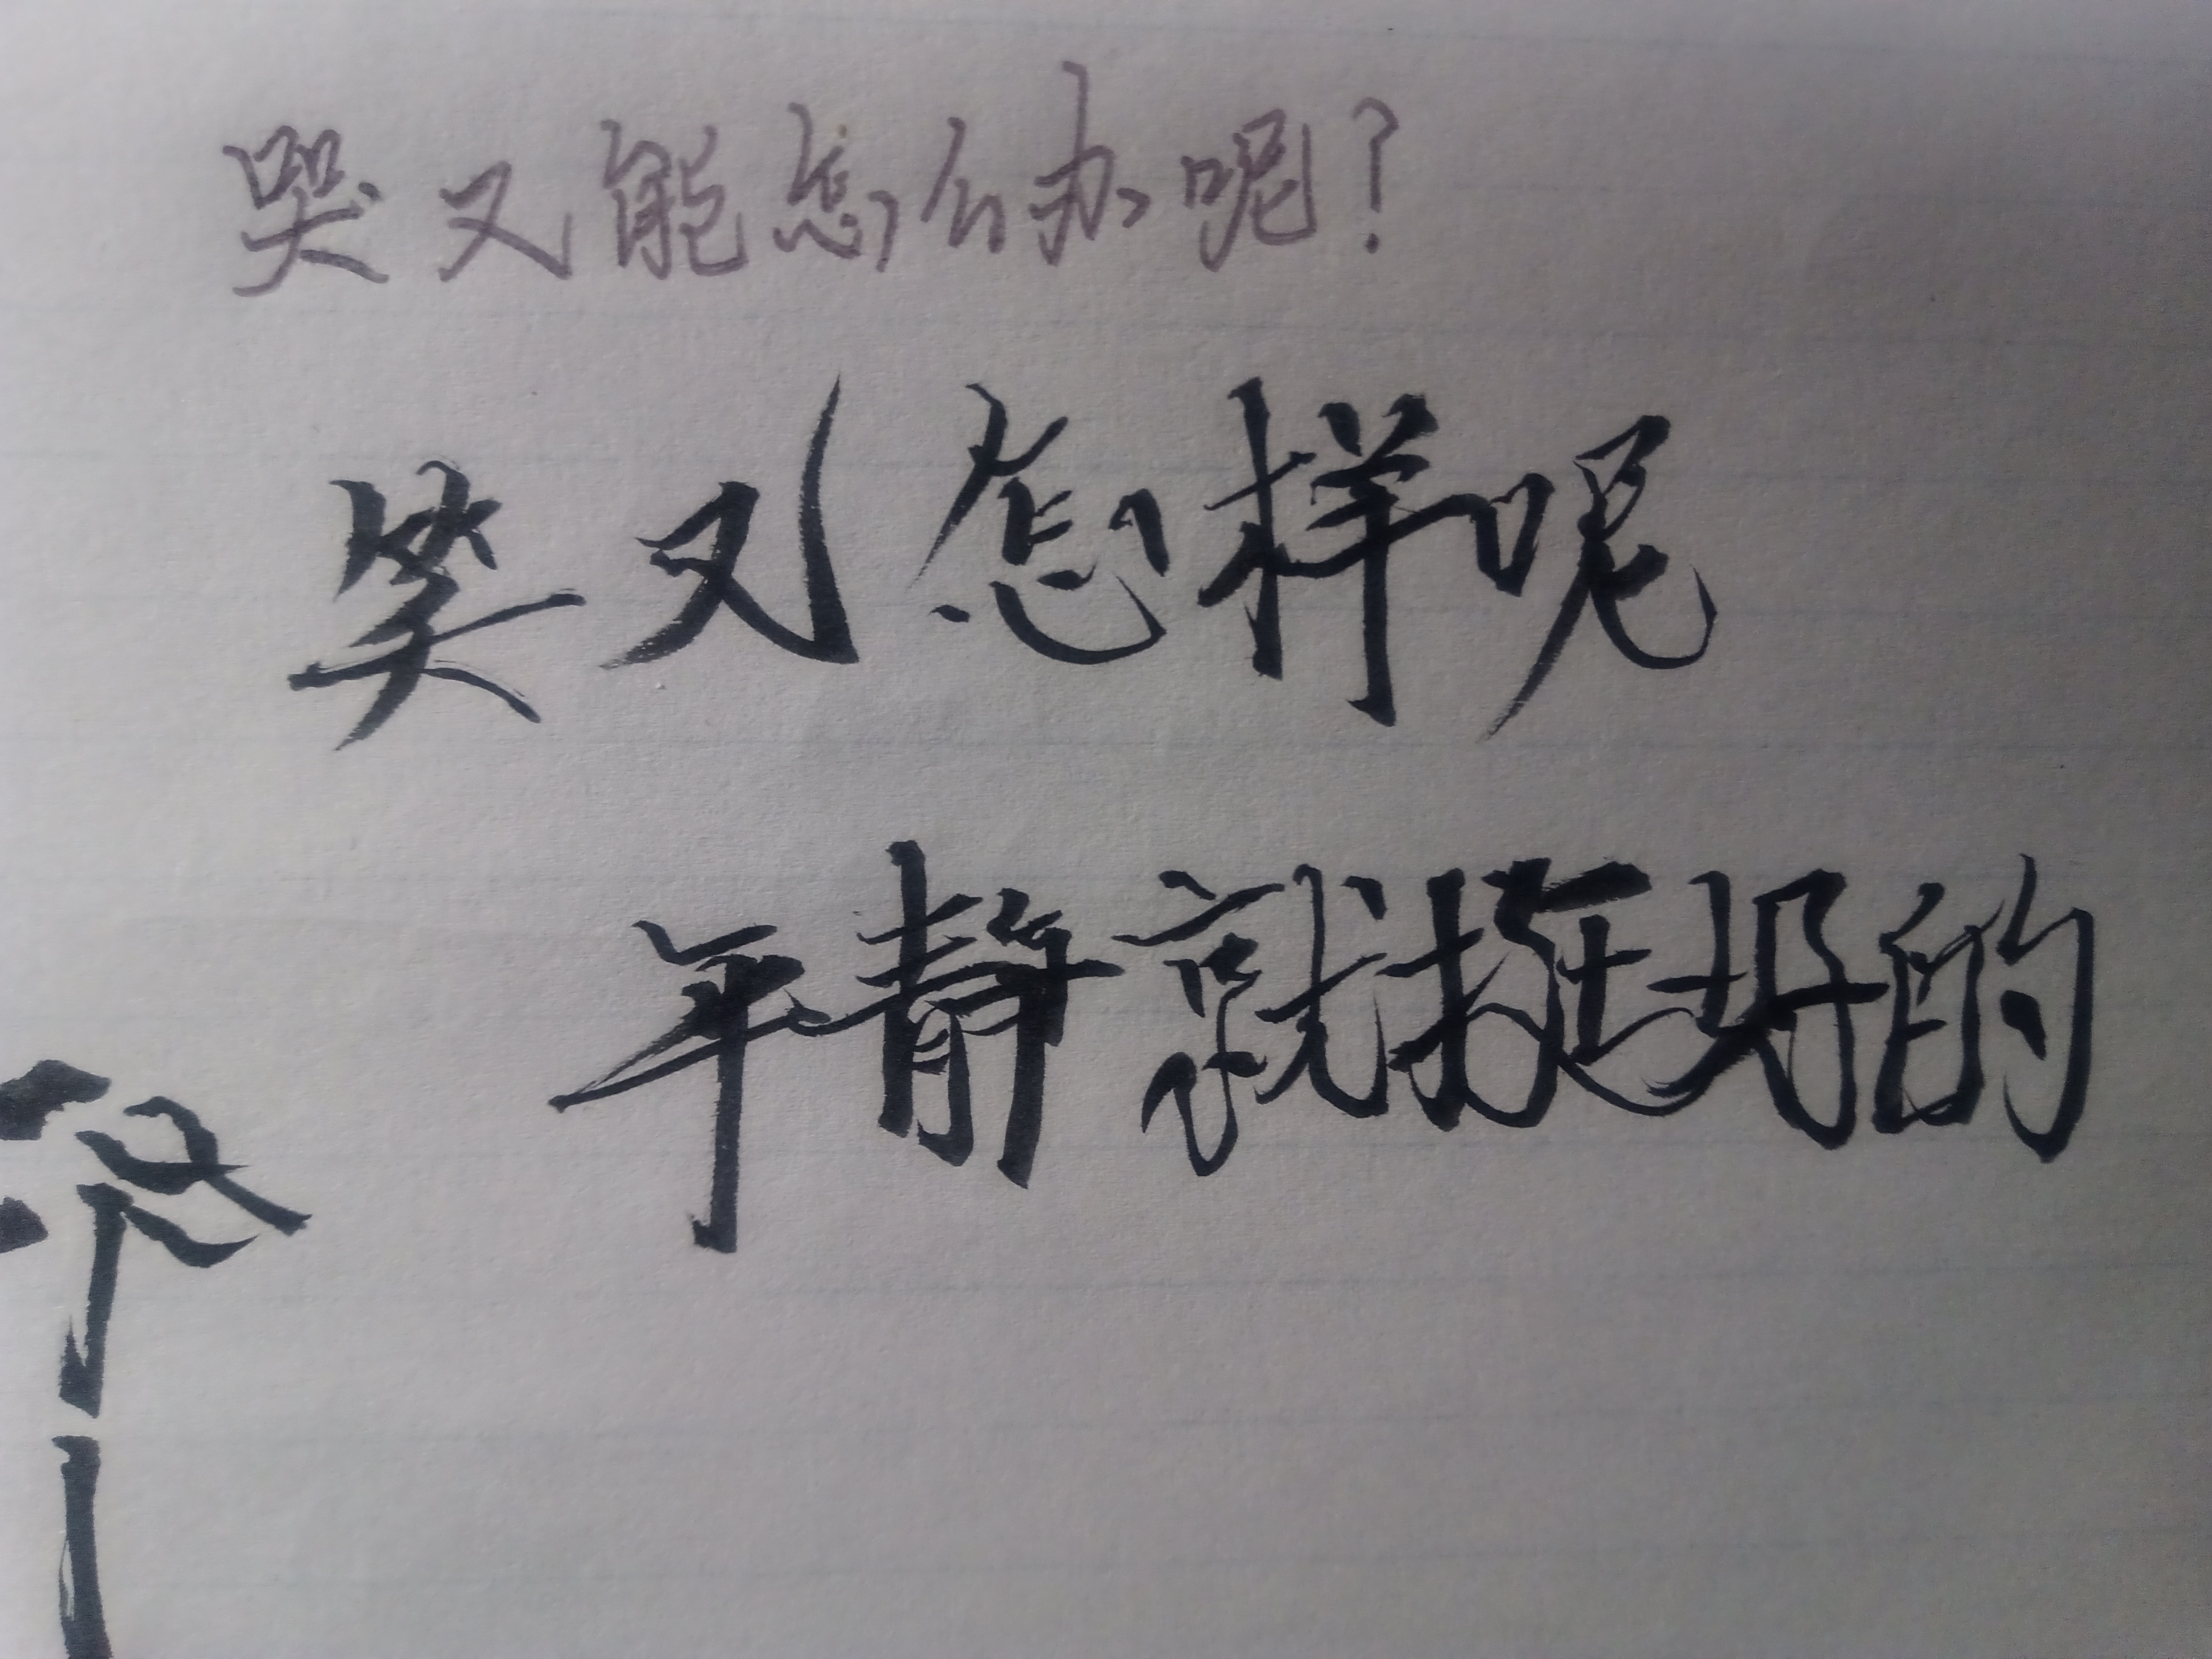 哭又能怎么办呢？
笑又怎样呢
平静就挺好的